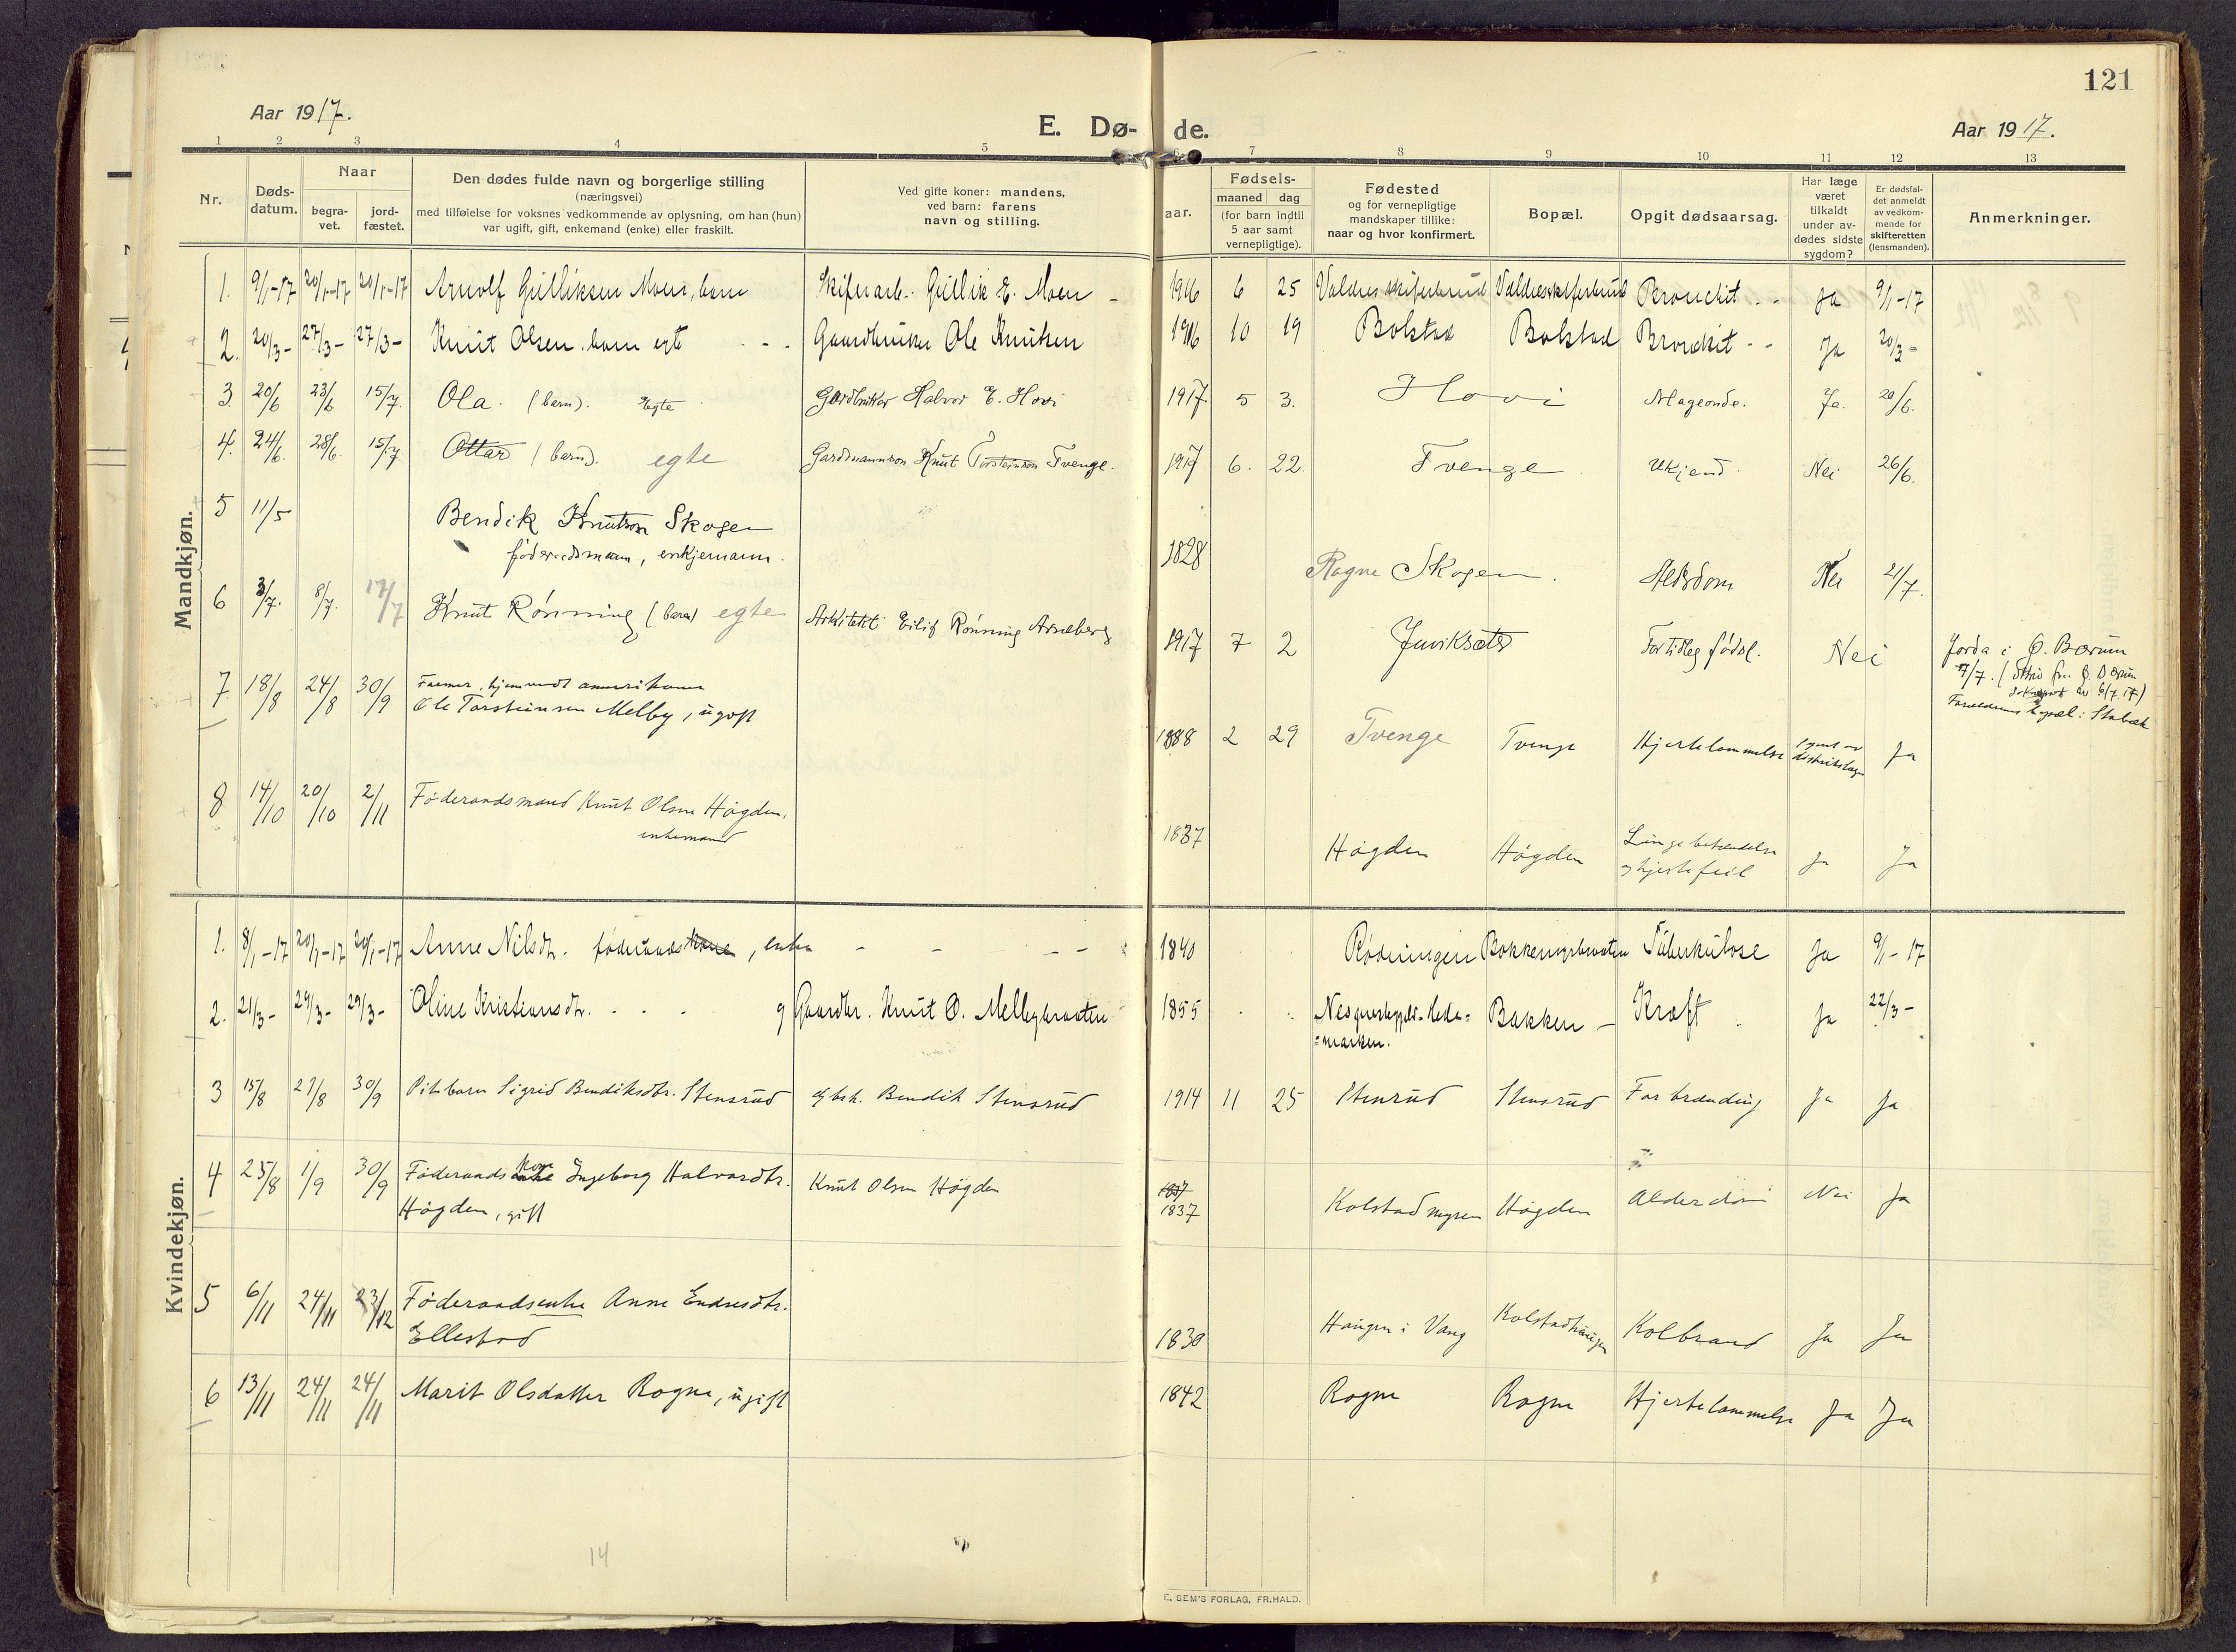 121
Aar 1917.
E. Dø- de.
Aar 1917.
1 2 3 4 5 6 7 8 9 10 11 12 13
Nr.
Døds-
datum.
Naar
begra-
vet.
jord-
fæstet.
Den dødes fulde navn og borgerlige stilling
(næringsvei)
med tilføielse for voksnes vedkommende av oplysning, om han (hun)
var ugift, gift, enkemand (enke) eller fraskilt.
Ved gifte koner: mandens,
ved barn: farens
navn og stilling.
aar.
Fødsels-
maaned dag
(for barn indtil
5 aar samt
vernepligtige).
Fødested
og for vernepligtige
mandskaper tillike:
naar og hvor konfirmert.
Bopæl.
Opgit dødsaarsag.
Har læge
været
tilkaldt
under av-
dødes sidste
sygdom?
Er dødsfal-
det anmeldt
av vedkom-
mende for
skifteretten
(lensmanden).
Anmerkninger.
Mandkjøn.
1. 9/1-17 20/1-17 20/1-17 Arnolf Gulliksen Moen, barn Skiferarb. Gullik E. Moen 1916 6 25 Valdres skiferbrud Valdresskiferbrud Bronchit - - Ja 9/1-17
2. 20/3- 27/3- 27/3- Knut Olsen. barn egte - - Gaardbruker Ole Knutsen 1916 10 19 Bolstad Bolstad Bronchit - - Ja 20/3-
3. 20/6 23/6 15/7. Ola. (barn). Egte Gardbrukar Halvor E. Hovi 1917. 5 3. Hovi Mageonde. Ja. 20/6.
4. 24/6. 28/6. 15/7. Ottar (barn). egte Gardmannson Knut Torsteinson Tvenge. 1917 6. 22. Tvenge Ukjend. Nei 26/6.
5 11/5 Bendik Knutson Skogen
føderaadsmann, enkjemann.
1828 Rogne Skogen. Aldsdom Nei 2/7.
6 3/7. 8/7. 17/7 Knut Rønning (barn) egte Arkitekt Eilif Rønning Arneberg 1917 7 2 Juviksæter Fortidleg fødsl. Nei Jorda i Ø. Bærum
7. 18/8 24/8 30/9 Farmer, hjemvendt amerikaner
Ole Torsteinsen Melby, ugift
1888 2 29 Tvenge Tvenge Hjertelammelse Ja
Forældrenes bopæl: Stabæk
8 14/10 20/10 2/11 Føderaadsmand Knut Olsen Høgden,
enkemand
1837 Høgden Høgden Lungebetændelse
og hjertefeil Ja Ja
Kvindekjøn.
1. 8/1-17 20/1-17 20/1-17 Anne Nilsdt. føderaadskone, enke - - - - 1840 Rødningen Tuberkulose Ja 9/1-17
2. 21/3- 29/3- 29/3- Oline Kristiansdtr. - - - g Gaardbr. Knut O. Melbybraaten 1855 Hede-
=marken. Bakken - Kræft Ja 22/3-
3 15/8 27/8 30/9 Sigrid Bendiksdtr. Stensrud Bendik Stensrud 1914 11 25 Stensrud Stensrud Forbrænding Ja Ja
4 25/8 1/9 30/9 Føderaadskone Ingeborg Halvorsdtr.
Høgden, gift
Knut Olsen Høgden 1837
1837 Kolstadmyren Høgden Alderdom Nei Ja
5 6/11 24/11 23/12 Føderaadsenke Anne Endresdtr.
Ellestad
1830 Haugen i Vang Kolstadhaugen Kolbrand Ja Ja
6 13/11 24/11 24/11 Marit Olsdatter Rogne, ugift 1842 Rogne Rogne Hjertelammelse Ja Ja
14
E. SEM'S FORLAG, FR.HALD.